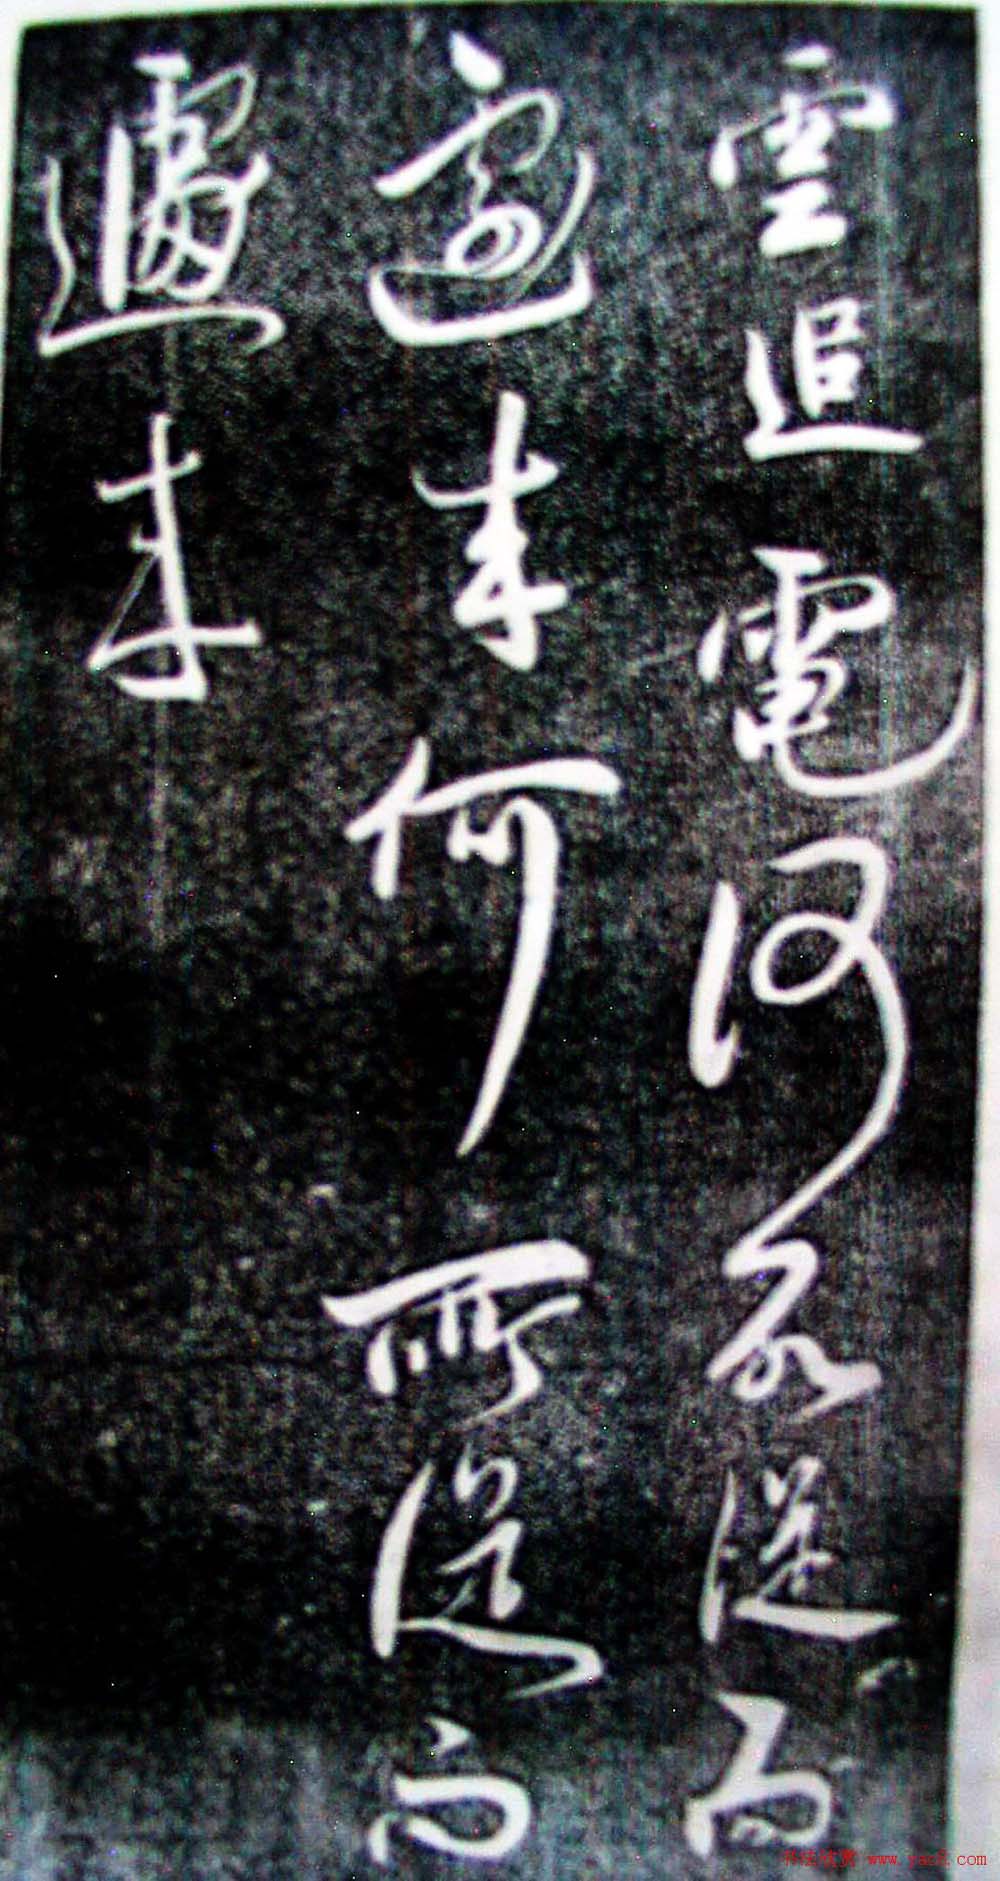 雲追電何從而
來何所從而
遽來
书法欣赏 www.yac8.com